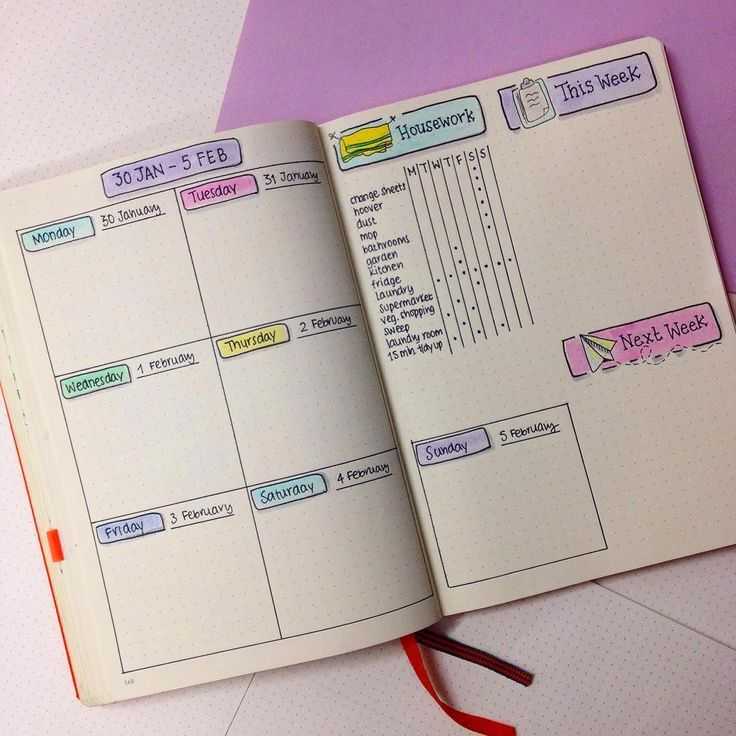 30 JAN - 5 FEB
Monday
30 January
Tuesday
31 January
Wednesday
1 February
Thursday
2 February
Friday
3 February
Saturday
4 February
Housework
M T W T F S S
change sheets
hoover
dust
mop
bathrooms
garden
kitchen
fridge
laundry
supermarket
veg. shopping
sweep
laundry room
15 min. tidy up
This Week
Next Week
Sunday
5 February